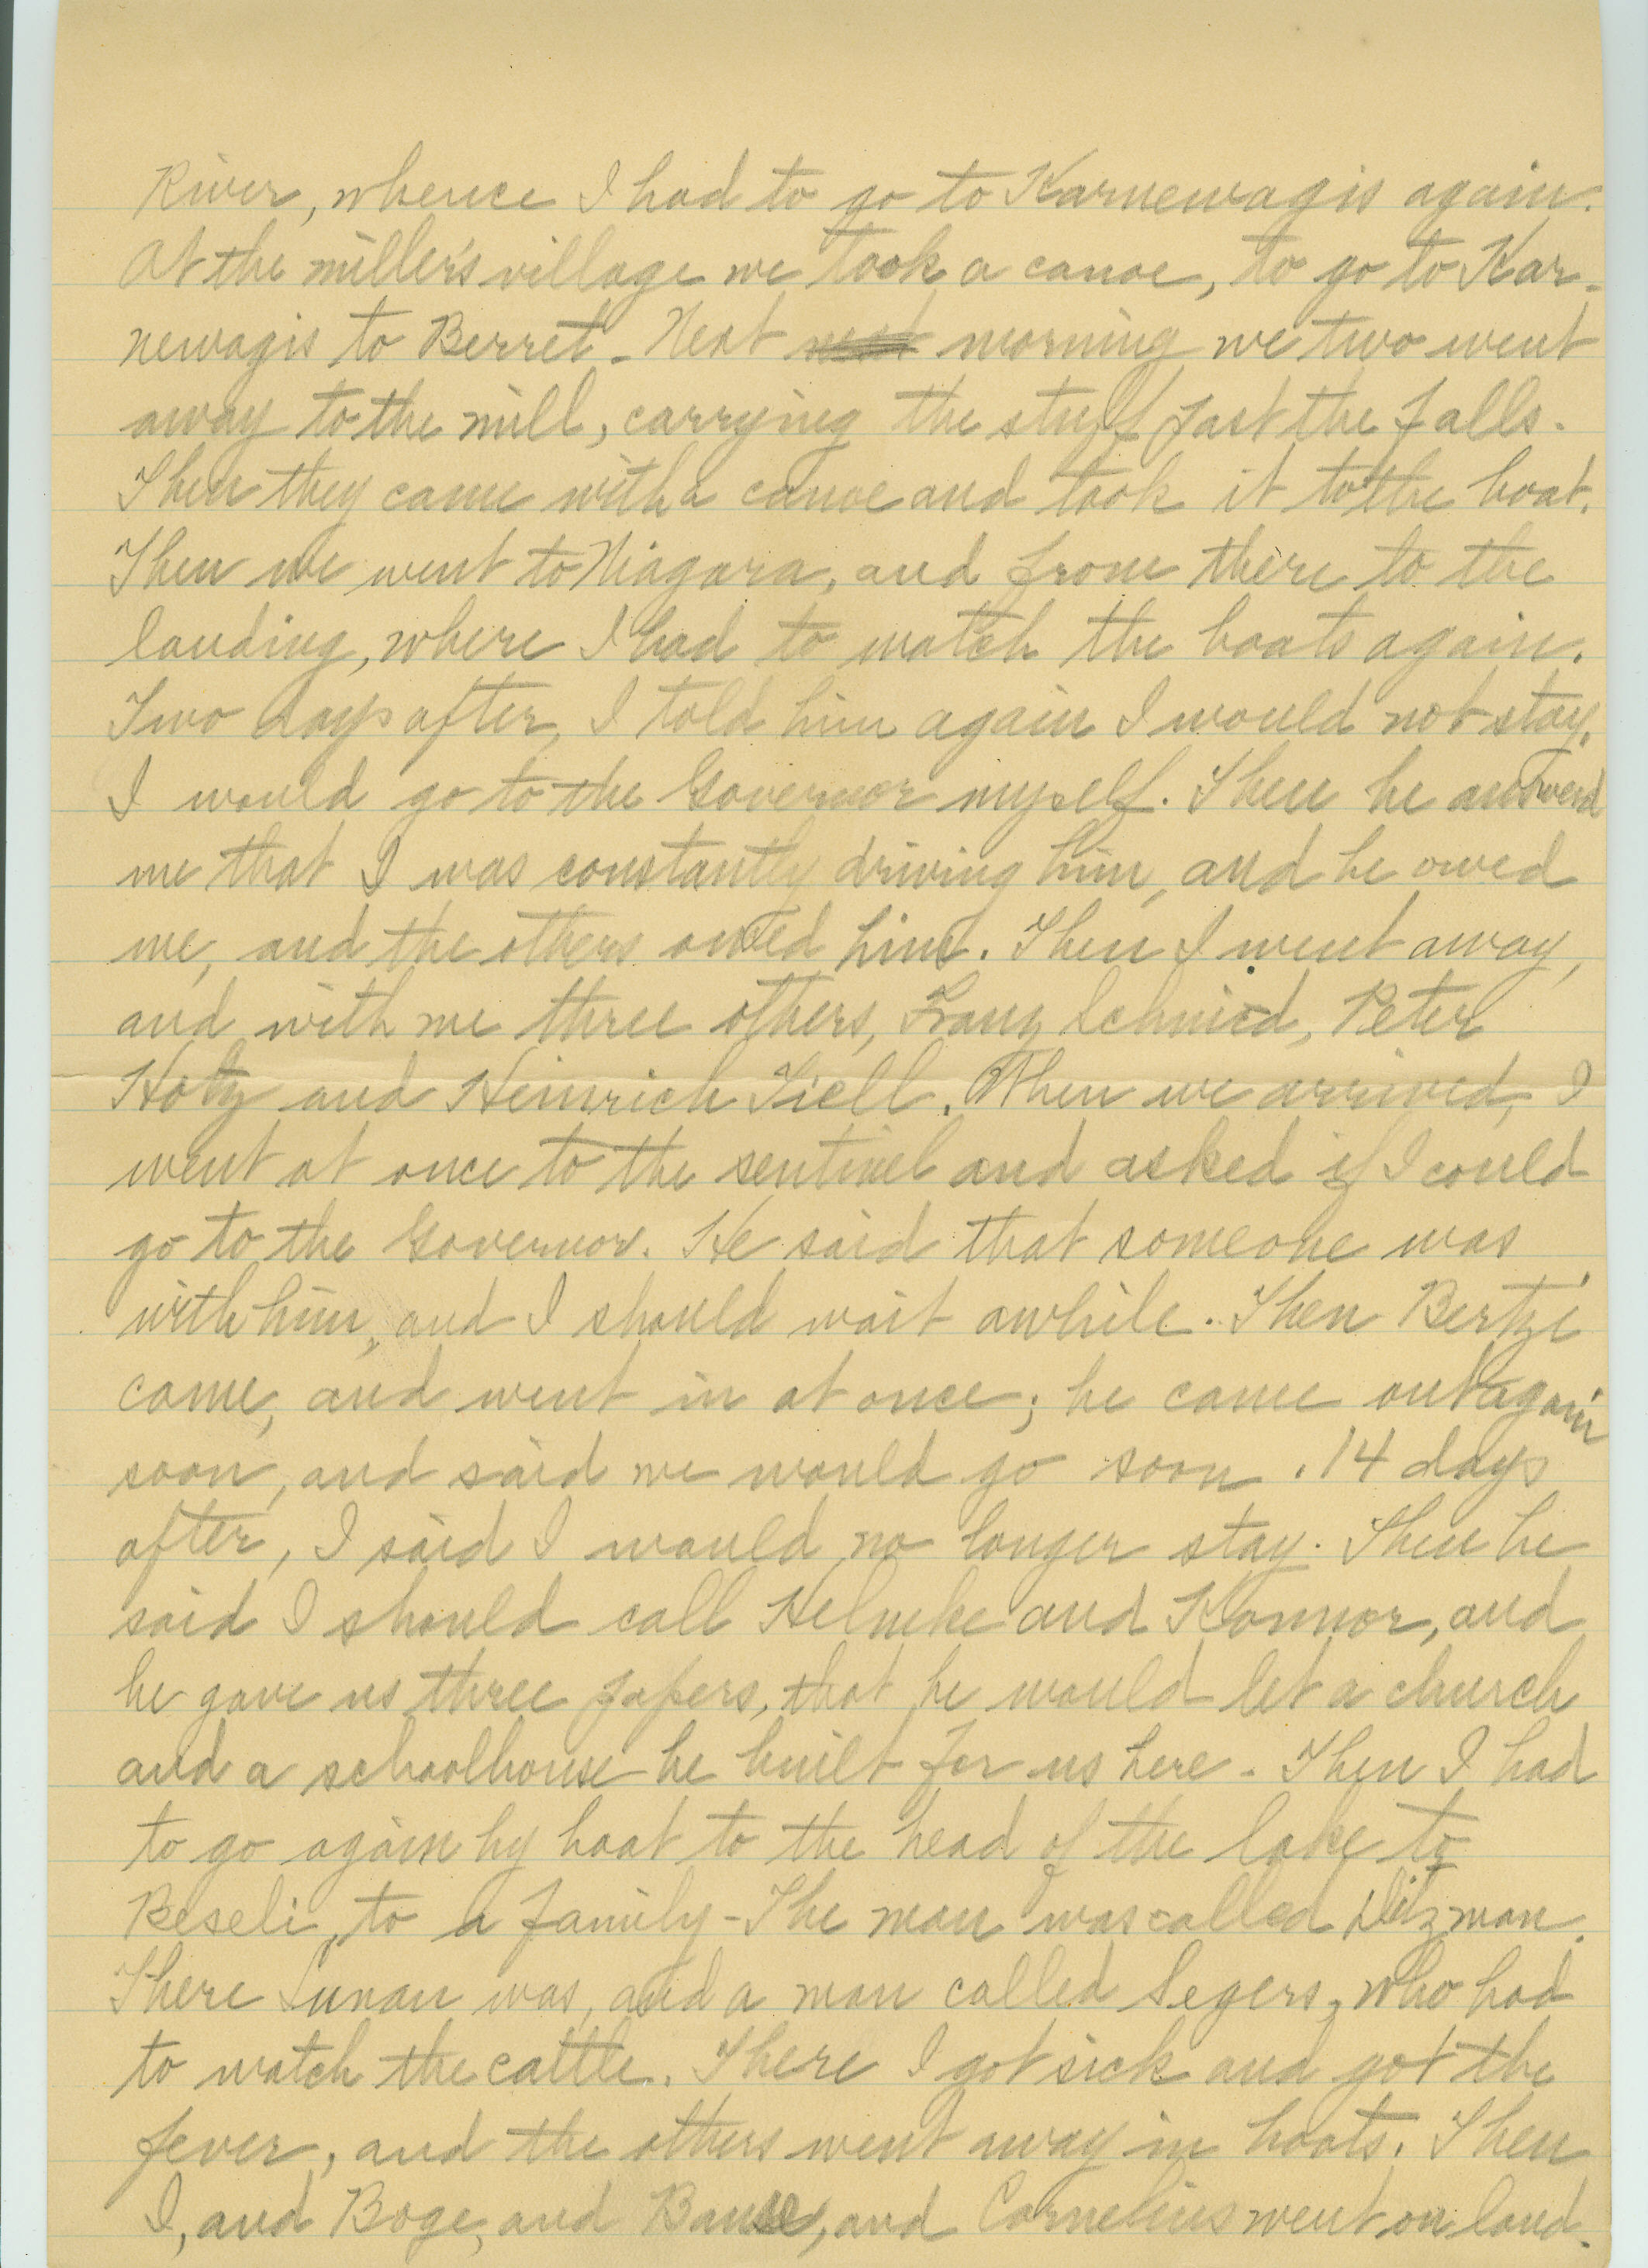 River, whence I had to go to Karnewagis again.
At the miller's village we took a canoe, to go to Kar-
newagis to Berret. Next morning we two went
away to the mill, carrying the stuff past the falls.
Then they came with a canoe and took it to the boat.
Then we went to Niagara, and from there to the
landing, where I had to watch the boats again.
Two days after, I told him again I would not stay.
I would go to the Governor myself. Then he answered
me that I was constantly driving him, and he owed
me, and the others owed him. Then I went away,
and with me three others, Franz Schmied, Peter
Holtz and Heinrich Tiell. When we arrived, I
went at once to the sentinel and asked if I could
go to the Governor. He said that someone was
with him, and I should wait awhile. Then Bertzi
came, and went in at once; he came out again
soon, and said we would go soon. 14 days
after, I said I would no longer stay. Then he
said I should call Helmke and Konnor, and
he gave us three papers, that he would let a church
and a schoolhouse be built for us here. Then I had
to go again by boat to the head of the lake to
Beseli, to a family - The man was called Ditzman.
There Lunau was, and a man called Segers, who had
to watch the cattle. There I got sick and got the
fever, and the others went away in boats. Then
I, and Boge, and and Cornelius went on land.